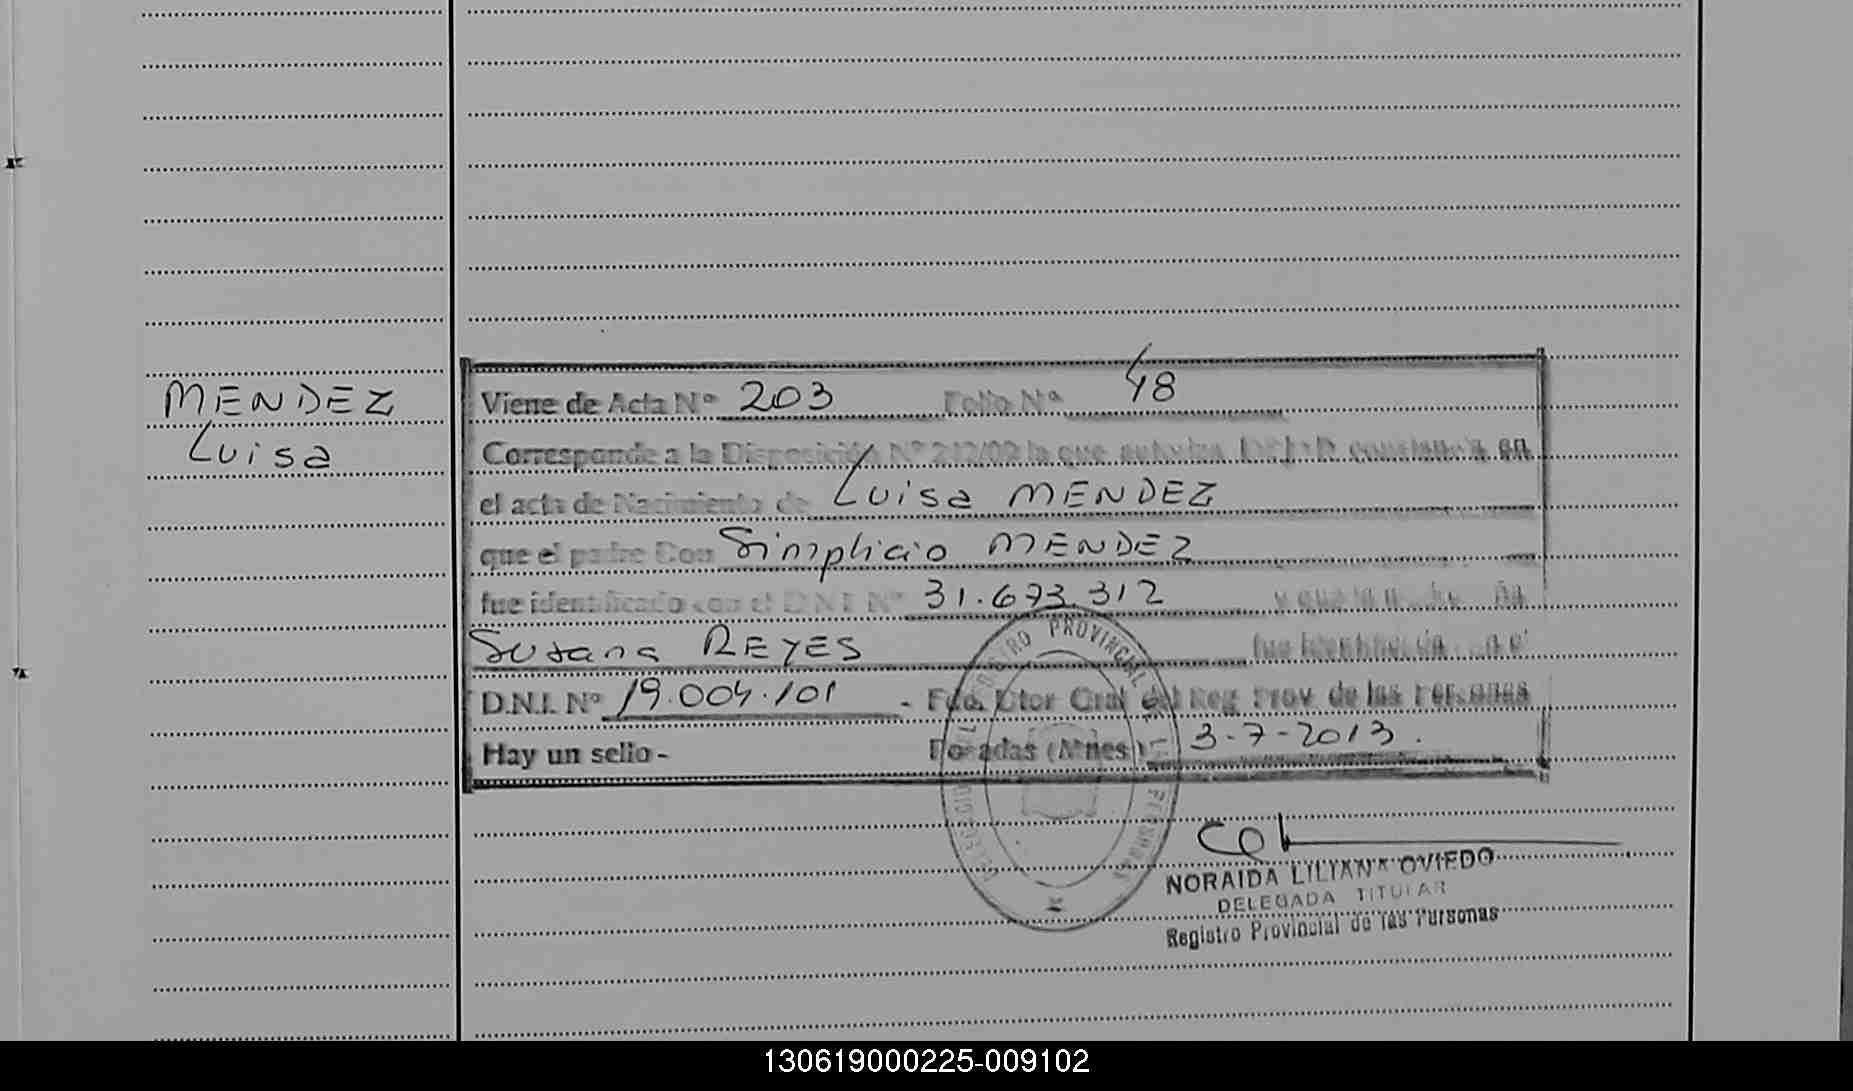 MENDEZ
Luisa
Viene de Acta Nº 203 Folio Nº 48
Corresponde a la Disposición Nº 212/09 la que autoriza constancia en
el acta de Nacimiento de Luisa MENDEZ
que el padre Don Simplicio MENDEZ
fue identificado con el D.N.I. Nº 31.673.312 y que la madre Ña
Susana REYES fue identificada
D.N.I. Nº 19.004.101 - Fdo. Dtor Gral del Reg Prov de las Personas
Hay un sello - Posadas (Mnes) - 3-7-2013.
REGISTRO PROVINCIAL
NORAIDA LILIANA OVIEDO
DELEGADA TITULAR
Registro Provincial de las Personas
130619000225-009102